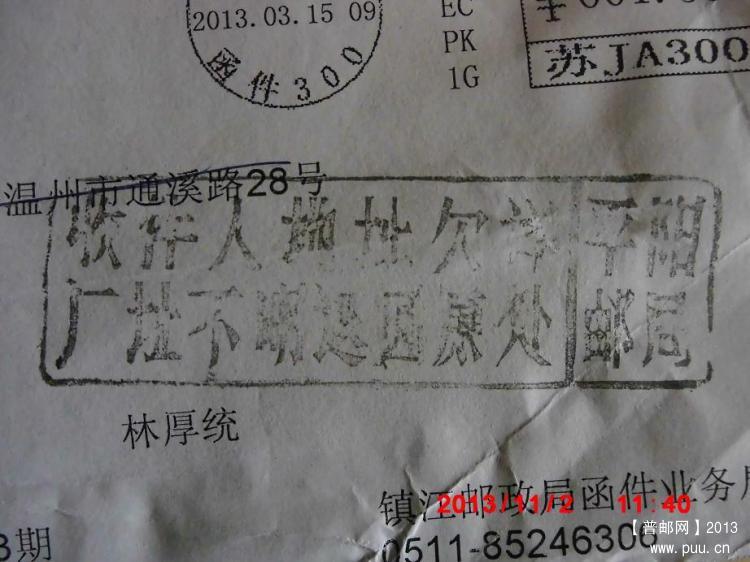 2013.03.15 09
函件300
EC
PK
1G
苏JA300
温州市通溪路28号
收件人地址欠详
厂址不明退回原处
平阳
邮局
林厚统
镇江邮政局函件业务
2013/11/2 11:40
期
0511-85246306
【普邮网】2013
www.puu.cn